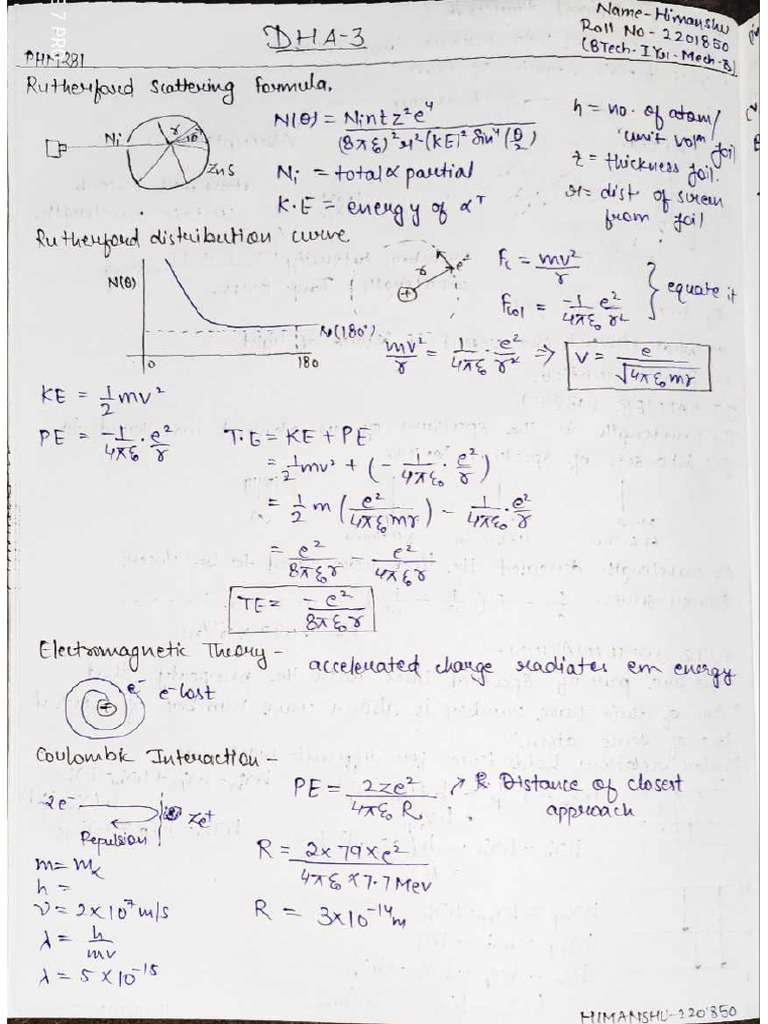 DHA-3
Name-Himanshu
Roll No - 2201850
(BTech-I Yr-Mech-B)
PHN-281
Rutherford Scattering Formula.
Ni r θ ZnS
N(θ) = Nintz²e⁴ / (8πε₀)²r²(KE)² Sin⁴(θ/2)
Ni = total α partial
K.E = energy of α
n = no. of atom/
unit vol^m foil
z = thickness foil.
r = dist. of screen
from foil
Rutherford distribution curve
N(θ)
N(180°)
0 180
r e⁻ +
Fc = mv²/r
Fcol = -1/4πε₀ e²/r²
} equate it
mv²/r = 1/4πε₀ · e²/r² ⇒ V = e/√4πε₀mr
KE = 1/2 mv²
PE = -1/4πε₀ · e²/r
T.E = KE + PE
= 1/2 mv² + (- 1/4πε₀ · e²/r)
= 1/2 m (e²/4πε₀mr) - 1/4πε₀ · e²/r
= e²/8πε₀r - e²/4πε₀r
TE = -e²/8πε₀r
Electromagnetic Theory - accelerated charge radiates em energy
+ e⁻ e-lost
Coulombic Interaction -
2e⁻ Ze⁺
Repulsion
PE = 2ze²/4πε₀R → R Distance of closest
approach
m = mα
h =
v = 2×10⁷ m/s
λ = h/mv
λ = 5 × 10⁻¹⁵
R = 2×79×e²/4πε₀×7.7 Mev
R = 3×10⁻¹⁴m
HIMANSHU-220'850